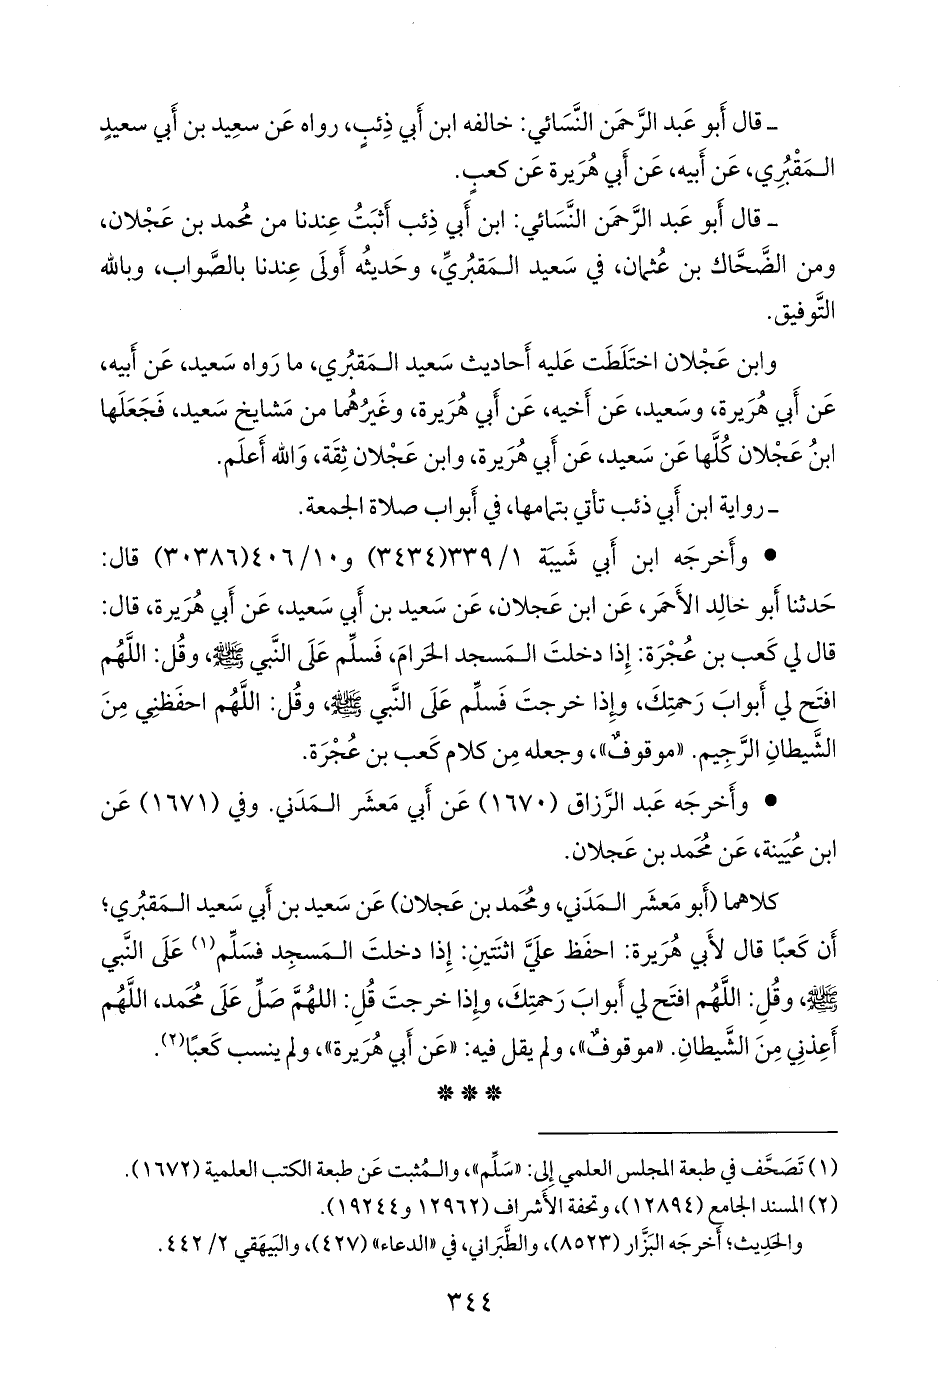 ـ قال أَبو عَبد الرَّحمَن النَّسَائي: خالفه ابن أَبي ذِئبٍ، رواه عَن سعِيد بن أَبي سعيدٍ
المَقْبُرِي، عَن أَبيه، عَن أَبي هُرَيرة عَن كعبٍ.
ـ قال أَبو عَبد الرَّحمَن النَّسَائي: ابن أَبي ذِئب أَثبَتُ عِندنا من مُحمد بن عَجْلان،
ومن الضَّحَّاك بن عُثمان، في سَعيد المَقبُريِّ، وحَديثُه أَولَى عِندنا بالصَّواب، وبالله
التَّوفيق.
وابن عَجْلان اختَلَطَت عَليه أَحاديث سَعيد المَقبُري، ما رَواه سَعيد، عَن أَبيه،
عَن أَبي هُرَيرة، وسَعيد، عَن أَخيه، عَن أَبي هُرَيرة، وغَيرُهُما من مَشايخ سَعيد، فَجَعَلَها
ابنُ عَجْلان كُلَّها عَن سَعيد، عَن أَبي هُرَيرة، وابن عَجْلان ثِقَة، وَالله أَعلَم.
ـ رواية ابن أَبي ذئب تأتي بتمامها، في أَبواب صلاة الجمعة.
• وأَخرجَه ابن أَبي شَيبَة ١/ ٣٣٩(٣٤٣٤) و١٠/ ٤٠٦(٣٠٣٨٦) قال:
حَدثنا أَبو خالِد الأَحمَر، عَن ابن عَجلان، عَن سَعيد بن أَبي سَعيد، عَن أَبي هُرَيرة، قال:
قال لي كَعب بن عُجْرَة: إِذا دخلتَ المَسجد الحَرامَ، فَسلِّم عَلَى النَّبي ﷺ، وقُل: اللَّهُم
افتَح لي أَبوابَ رَحمتِكَ، وإِذا خرجتَ فَسلِّم عَلَى النَّبي ﷺ، وقُل: اللَّهُم احفَظنِي مِنَ
الشَّيطانِ الرَّجِيم. «موقوفٌ»، وجعله مِن كلام كَعب بن عُجْرَة.
• وأَخرجَه عَبد الرَّزاق (١٦٧٠) عَن أَبي مَعشَر المَدَني. وفي (١٦٧١) عَن
ابن عُيَينة، عَن مُحَمد بن عَجلان.
كلاهما (أَبو مَعشَر المَدَني، ومُحَمد بن عَجلان) عَن سَعيد بن أَبي سَعيد المَقبُري؛
أَن كَعبًا قال لأَبي هُرَيرة: احفَظ عليَّ اثنَتَينِ: إِذا دخلتَ المَسجِد فسَلِّم(١) عَلَى النَّبي
ﷺ، وقُلِ: اللَّهُم افتَح لي أَبوابَ رَحمتِكَ، وإِذا خرجتَ قُلِ: اللهُمَّ صَلِّ عَلَى مُحَمد، اللَّهُم
أَعِذنِي مِنَ الشَّيطانِ. «موقوفٌ»، ولم يقل فيه: «عَن أَبي هُرَيرة»، ولم ينسب كَعبًا(٢).
* * *
(١) تَصَحَّف في طبعة المجلس العلمي إِلى: «سَلِّم»، والمُثبت عَن طبعة الكتب العلمية (١٦٧٢).
(٢) المسند الجامع (١٢٨٩٤)، وتحفة الأَشراف (١٢٩٦٢ و١٩٢٤٤).
والحَدِيث؛ أَخرجَه البَزَّار (٨٥٢٣)، والطَّبَراني، في «الدعاء» (٤٢٧)، والبَيهَقي ٢/ ٤٤٢.
٣٤٤